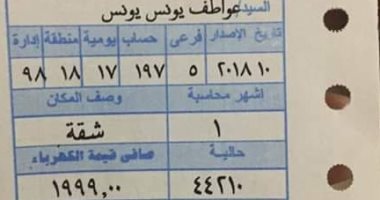 السيد/عواطف يونس يونس
تاريخ الإصدار فرعى حساب يومية منطقة إدارة
٢٠١٨ ١٠ ٥ ١٩٧ ١٧ ١٨ ٩٨
اشهر محاسبة وصف المكان
١ شقة
حالية صافى قيمة الكهرباء
٤٤٢١٠ ١٩٩٩,٠٠